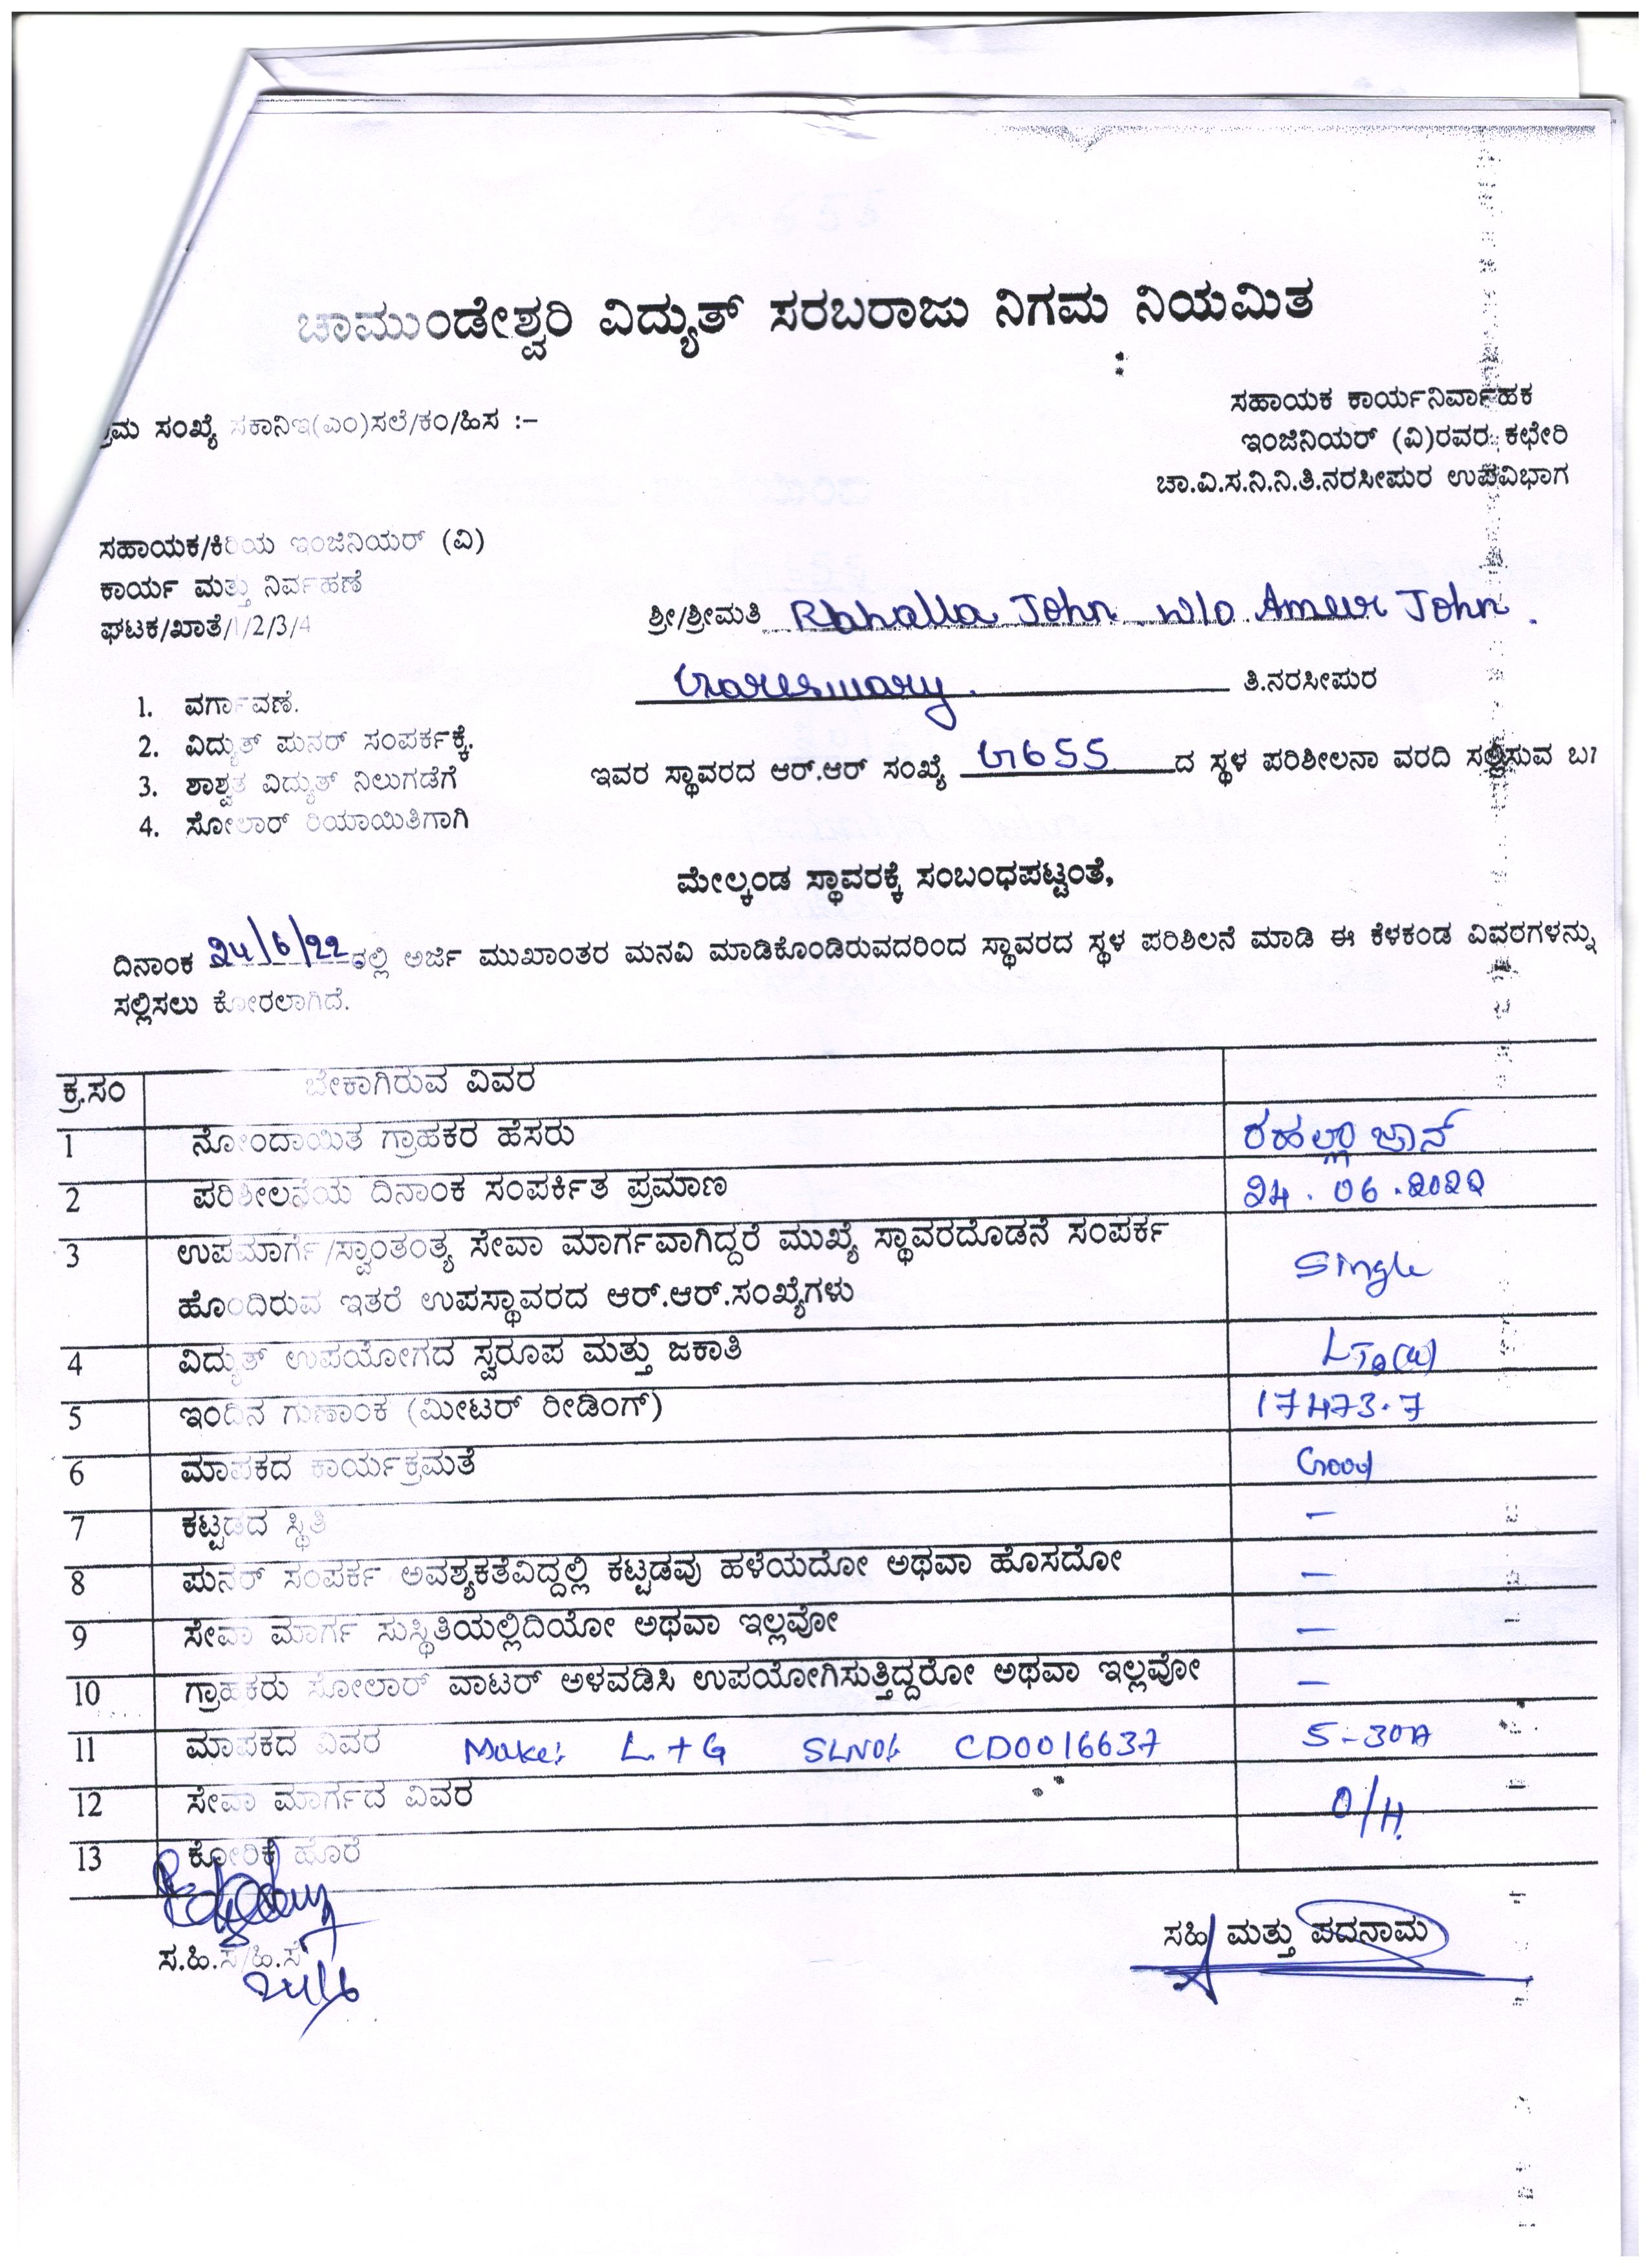 ಚಾಮುಂಡೇಶ್ವರಿ ವಿದ್ಯುತ್ ಸರಬರಾಜು ನಿಗಮ ನಿಯಮಿತ
ಸಂಖ್ಯೆ ಸಕಾನಿಇ(ಎಂ)ಸಲೆ/ಕಂ/ಹಿಸ :-
ಸಹಾಯಕ ಕಾರ್ಯನಿರ್ವಾಹಕ
ಇಂಜಿನಿಯರ್ (ವಿ)ರವರ ಕಛೇರಿ
ಚಾ.ವಿ.ಸ.ನಿ.ನಿ.ತಿ.ನರಸೀಪುರ ಉಪವಿಭಾಗ
ಸಹಾಯಕ/ಕಿರಿಯ ಇಂಜಿನಿಯರ್ (ವಿ)
ಕಾರ್ಯ ಮತ್ತು ನಿರ್ವಹಣೆ
ಘಟಕ/ಖಾತೆ/1/2/3/4
ಶ್ರೀ/ಶ್ರೀಮತಿ Rahalla John w/o Ameer John
ತಿ.ನರಸೀಪುರ
1. ವರ್ಗಾವಣೆ.
2. ವಿದ್ಯುತ್ ಪುನರ್ ಸಂಪರ್ಕಕ್ಕೆ.
3. ಶಾಶ್ವತ ವಿದ್ಯುತ್ ನಿಲುಗಡೆಗೆ
4. ಸೋಲಾರ್ ರಿಯಾಯಿತಿಗಾಗಿ
ಇವರ ಸ್ಥಾವರದ ಆರ್.ಆರ್ ಸಂಖ್ಯೆ G655 ದ ಸ್ಥಳ ಪರಿಶೀಲನಾ ವರದಿ ಸಲ್ಲಿಸುವ
ಮೇಲ್ಕಂಡ ಸ್ಥಾವರಕ್ಕೆ ಸಂಬಂಧಪಟ್ಟಂತೆ,
ದಿನಾಂಕ 24/6/22 ರಲ್ಲಿ ಅರ್ಜಿ ಮುಖಾಂತರ ಮನವಿ ಮಾಡಿಕೊಂಡಿರುವದರಿಂದ ಸ್ಥಾವರದ ಸ್ಥಳ ಪರಿಶಿಲನೆ ಮಾಡಿ ಈ ಕೆಳಕಂಡ ವಿವರಗಳನ್ನು
ಸಲ್ಲಿಸಲು ಕೋರಲಾಗಿದೆ.
ಕ್ರ.ಸಂ ಬೇಕಾಗಿರುವ ವಿವರ
1 ನೋಂದಾಯಿತ ಗ್ರಾಹಕರ ಹೆಸರು ರಹಲ್ಲಾ ಜಾನ್
2 ಪರಿಶೀಲನೆಯ ದಿನಾಂಕ ಸಂಪರ್ಕಿತ ಪ್ರಮಾಣ 24.06.2022
3 ಉಪಮಾರ್ಗ/ಸ್ವಾಂತಂತ್ಯ ಸೇವಾ ಮಾರ್ಗವಾಗಿದ್ದರೆ ಮುಖ್ಯೆ ಸ್ಥಾವರದೊಡನೆ ಸಂಪರ್ಕ Single
ಹೊಂದಿರುವ ಇತರೆ ಉಪಸ್ಥಾವರದ ಆರ್.ಆರ್.ಸಂಖ್ಯೆಗಳು
4 ವಿದ್ಯುತ್ ಉಪಯೋಗದ ಸ್ವರೂಪ ಮತ್ತು ಜಕಾತಿ
5 ಇಂದಿನ ಗುಣಾಂಕ (ಮೀಟರ್ ರೀಡಿಂಗ್) 17473.7
6 ಮಾಪಕದ ಕಾರ್ಯಕ್ರಮತೆ Good
7 ಕಟ್ಟಡದ ಸ್ಥಿತಿ –
8 ಪುನರ್ ಸಂಪರ್ಕ ಅವಶ್ಯಕತೆವಿದ್ದಲ್ಲಿ ಕಟ್ಟಡವು ಹಳೆಯದೋ ಅಥವಾ ಹೊಸದೋ –
9 ಸೇವಾ ಮಾರ್ಗ ಸುಸ್ಥಿತಿಯಲ್ಲಿದಿಯೋ ಅಥವಾ ಇಲ್ಲವೋ –
10 ಗ್ರಾಹಕರು ಸೋಲಾರ್ ವಾಟರ್ ಅಳವಡಿಸಿ ಉಪಯೋಗಿಸುತ್ತಿದ್ದರೋ ಅಥವಾ ಇಲ್ಲವೋ –
11 ಮಾಪಕದ ವಿವರ Make: L+G SLNO: CD0016637 5-30A
12 ಸೇವಾ ಮಾರ್ಗದ ವಿವರ O/H
13 ಕೋರಿಕೆ ಹೊರೆ
ಸ.ಹಿ.ಸ/ಹಿ.ಸೆ
24/6
ಸಹಿ ಮತ್ತು ಪದನಾಮ